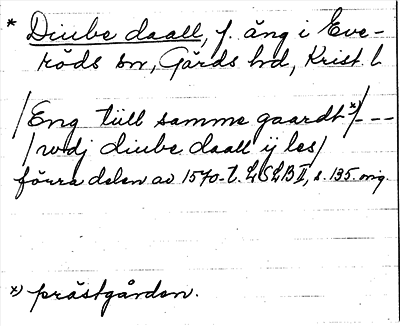 * Diube daall, f. äng i Eve-
röds sn, Gärds hd, Krist. l
/Eng tiill samme gaardt *)/---
/ wdj diube daall ij les/
förra delen av 1570-t. LSLB II, s. 135. orig.
*) prästgården.